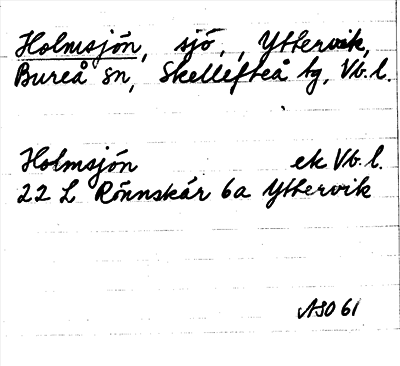 Holmsjön, sjö, , Yttervik,
Bureå sn, Skellefteå tg, Vb. l.
Holmsjön ek Vb. l.
22 L Rönnskär 6a Yttervik
ASO 61